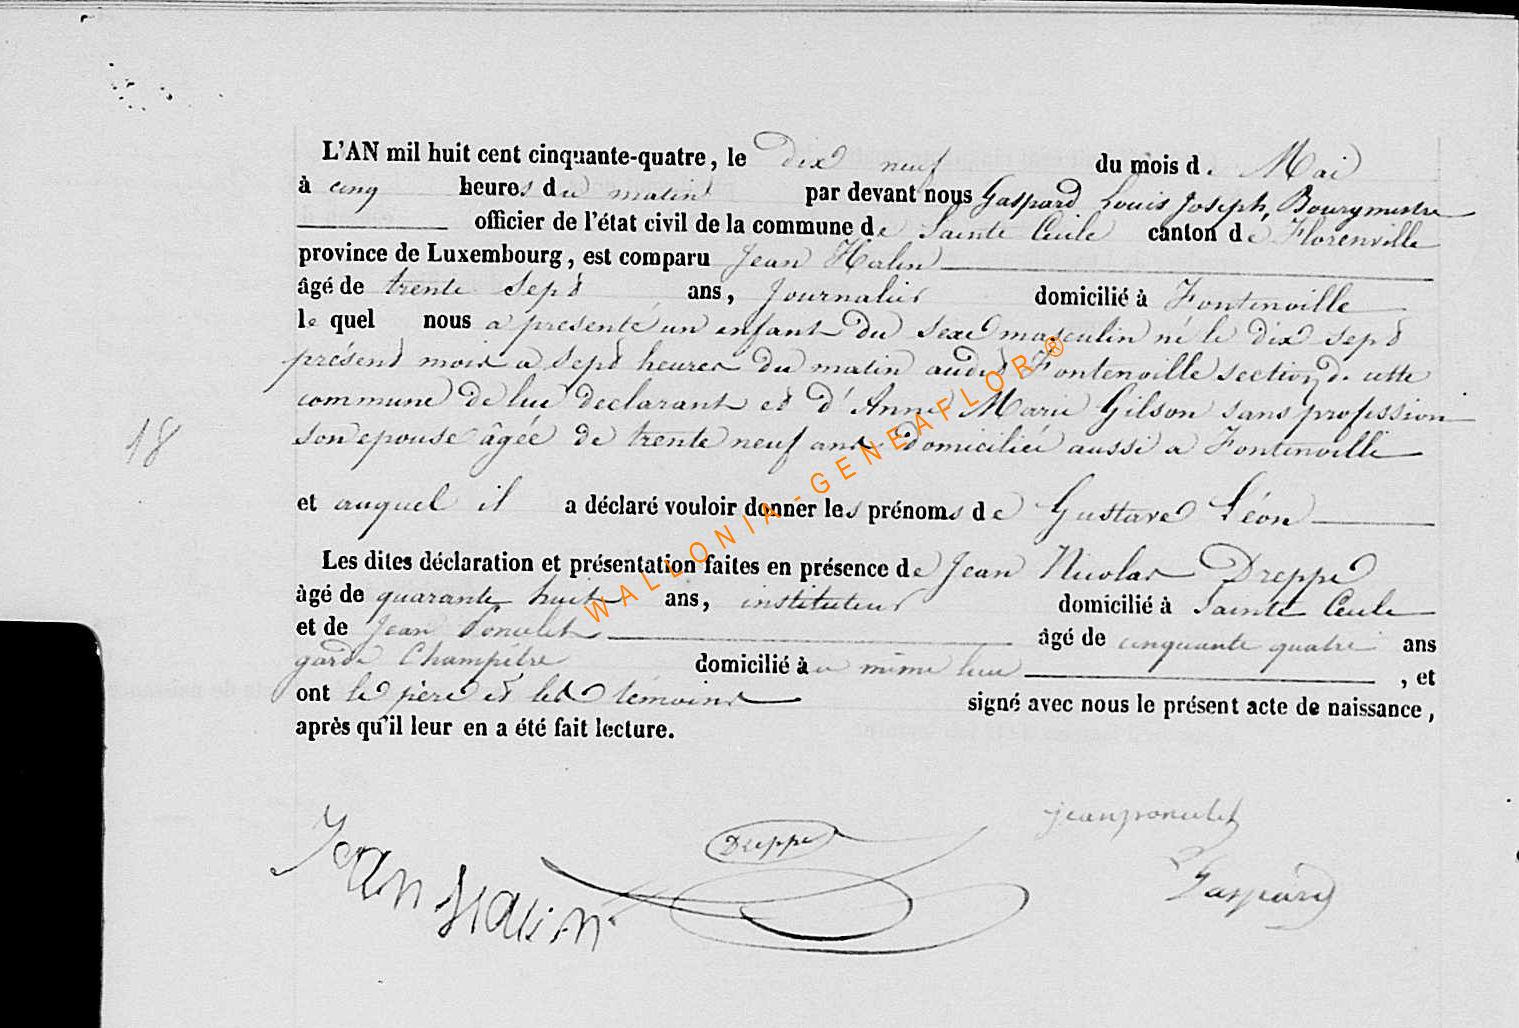 L'AN mil huit cent cinquante-quatre, le dix neuf du mois de Mai
à cinq heures du matin par devant nous Gaspard Louis Joseph, Bourgmestre
officier de l'état civil de la commune de Sainte Cécile canton de Florenville
province de Luxembourg, est comparu Jean Halin
âgé de trente sept ans, Journalier domicilié à Fontenoille
le quel nous a présenté un enfant du sexe masculin né le dix sept
présent mois a sept heures du matin audit Fontenoille section de cette
commune de lui déclarant et d'Anne Marie Gilson sans profession
18
son epouse âgée de trente neuf ans domiciliée aussi a Fontenoille
et auquel il a déclaré vouloir donner les prénoms de Gustave Léon
Les dites déclaration et présentation faites en présence de Jean Nicolas Dreppe
âgé de quarante huit ans, instituteur domicilié à Sainte Cecile
et de Jean Poncelet âgé de cinquante quatre ans
garde Champêtre domicilié à u même lieu, et
ont le père et les témoins signé avec nous le présent acte de naissance,
après qu'il leur en a été fait lecture.
jean poncelet
Dreppe
Jean Halin
Gaspard
WALLONIA-GENEAFLOR®